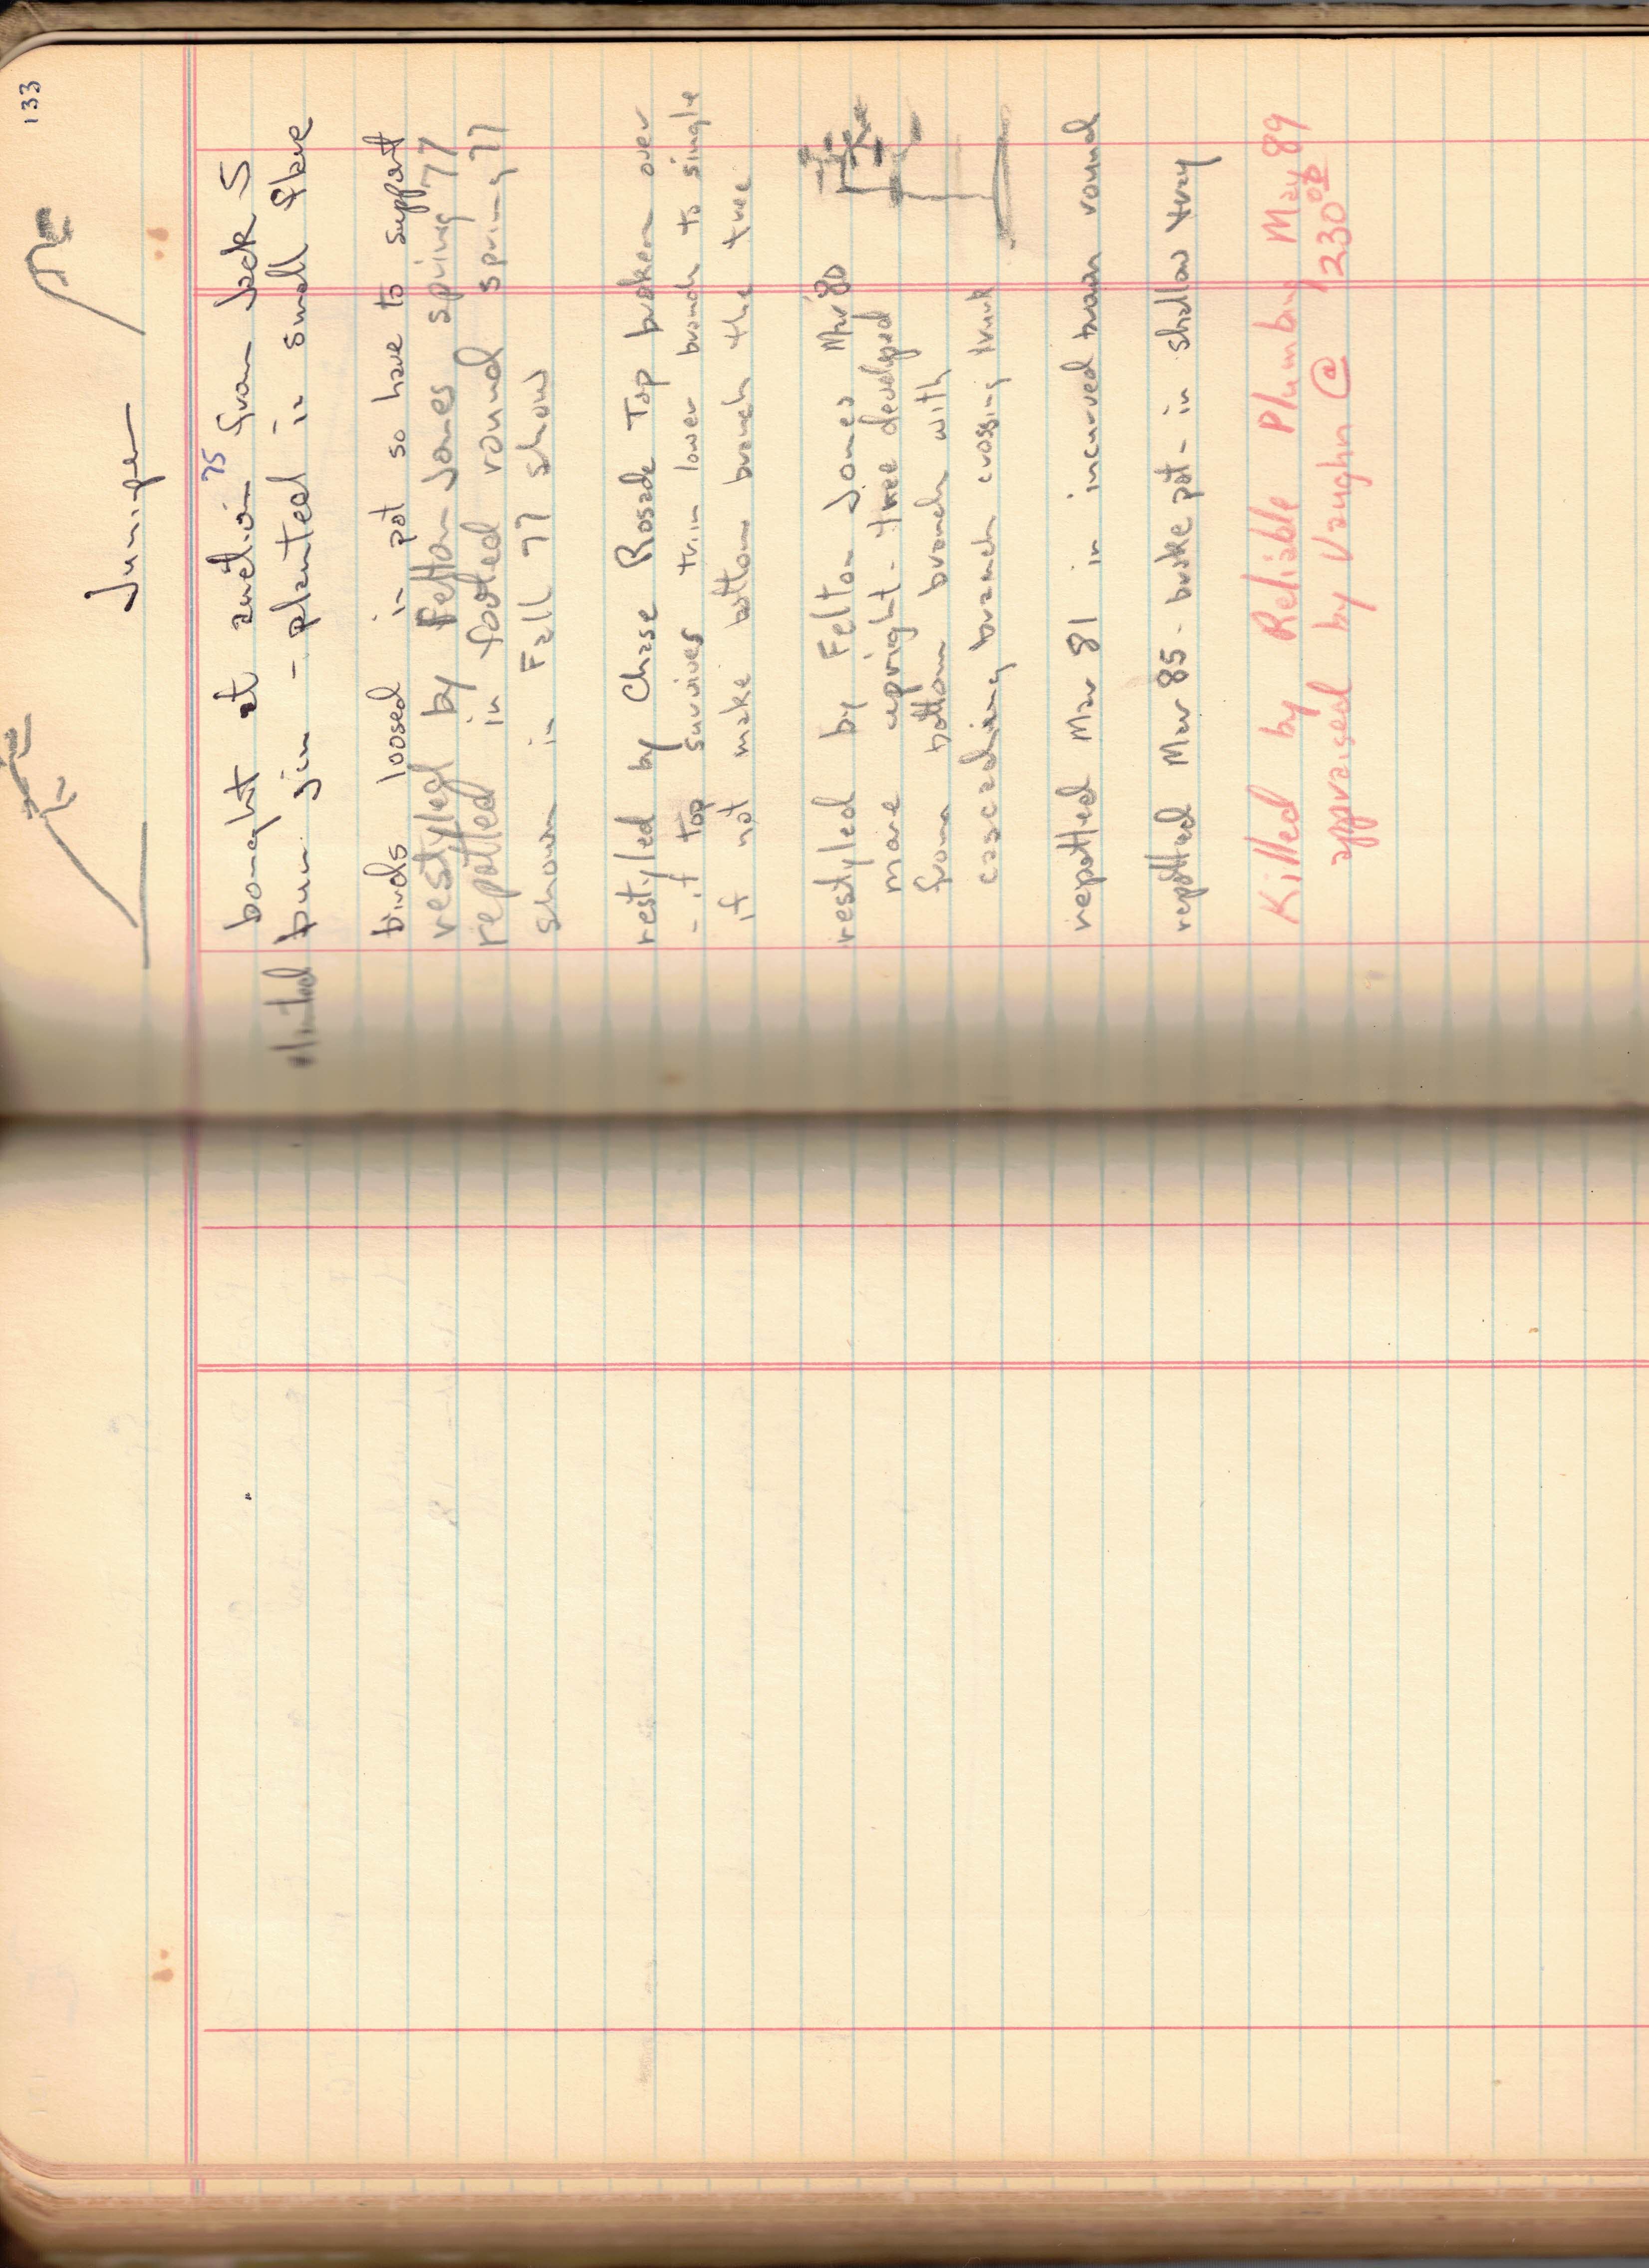 133
Juniper
bought at auction 75 from Jack S
bun jin - planted in small
birds loosed in pot so have to support
restyled by Felton Jones spring 77
repotted in footed round spring 77
shown in Fall 77 show
restyled by Chase Rosade Top broken over
- if top survives trim lower branch to single
if not make bottom branch the tree
restyled by Felton Jones Mar 80
more upright - tree developed
from bottom branch with
cascading branch crossing trunk
repotted Mar 81 in incurved brown round
repotted Mar 85 - broke pot - in shallow tray
Killed by Reliable Plumbing May 89
appraised by Vaughn @ 230.00